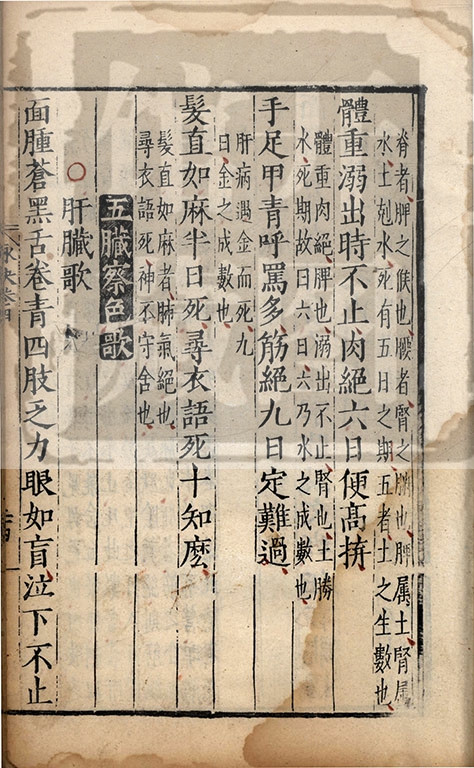 脊者脾之候也腰者腎之腑也脾属土腎属
水土剋水死有五日之期五者土之生數也
體重溺出時不止肉絕六日便高拚
體重肉絕脾也溺出不止腎也土勝
水死期故曰六日六乃水之成數也
手足甲青呼罵多筋絕九日定難過
肝病遇金而死九
日金之成數也
髮直如麻半日死尋衣語死十知麽
髮直如麻者肺氣絕也
尋衣語死神不守舍也
五臟察色歌
○肝臟歌
面腫蒼黑舌卷青四肢乏力眼如盲泣下不止